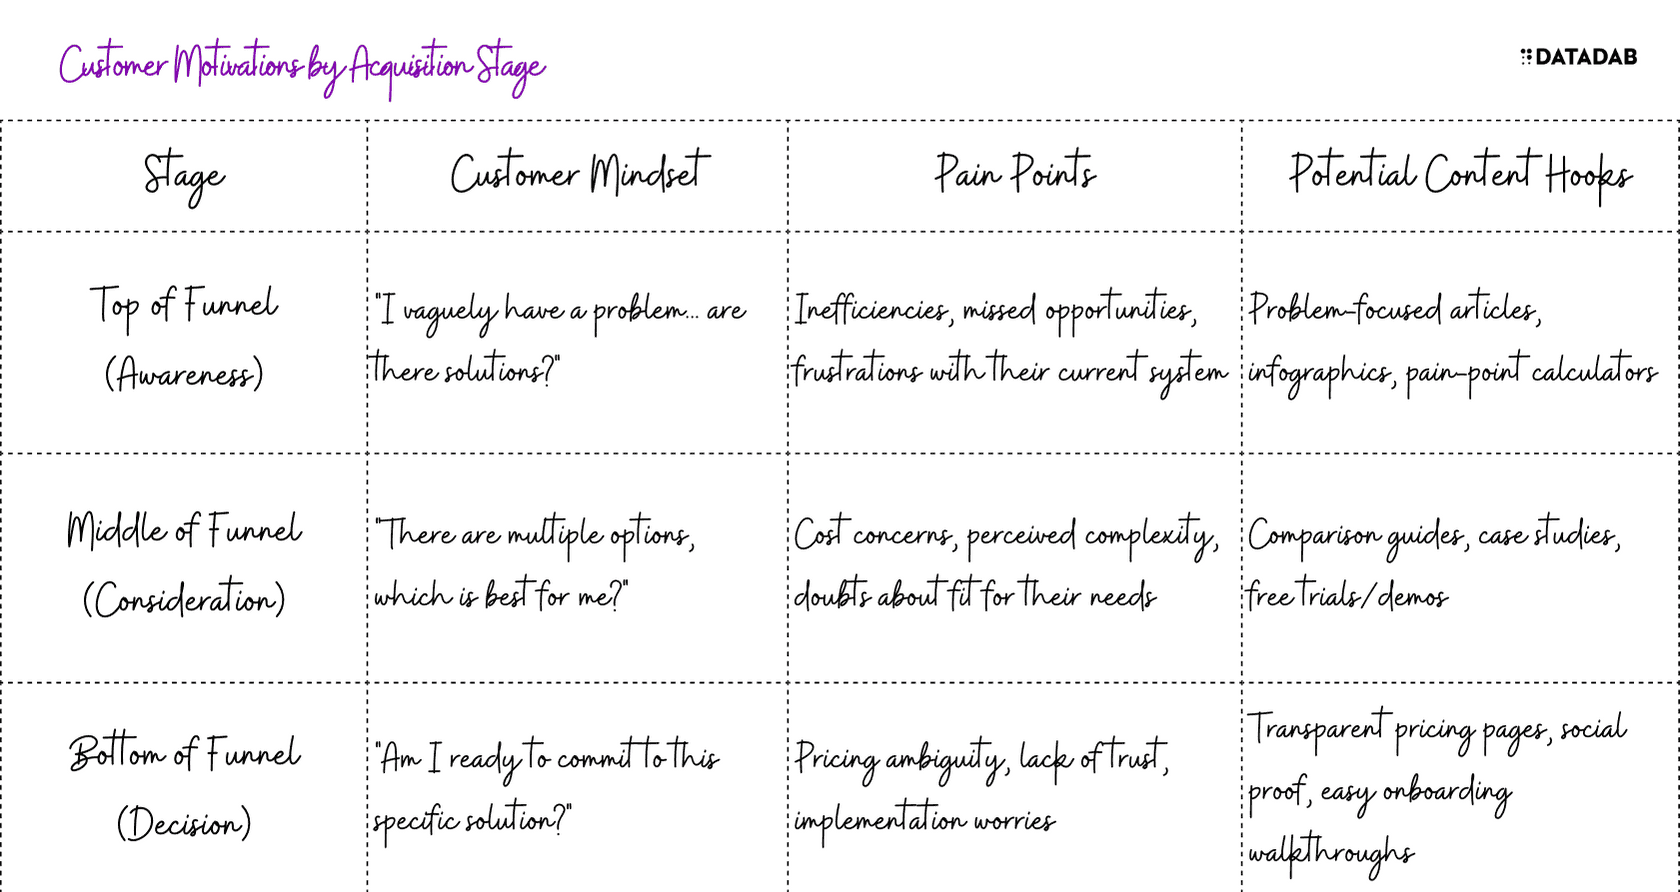 Customer Motivations by Acquisition Stage
DATADAB
Stage
Customer Mindset
Pain Points
Potential Content Hooks
Top of Funnel
(Awareness)
"I vaguely have a problem... are
there solutions?"
Inefficiencies, missed opportunities,
frustrations with their current system
Problem-focused articles,
infographics, pain-point calculators
Middle of Funnel
(Consideration)
"There are multiple options,
which is best for me?"
Cost concerns, perceived complexity,
doubts about fit for their needs
Comparison guides, case studies,
free trials/demos
Bottom of Funnel
(Decision)
"Am I ready to commit to this
specific solution?"
Pricing ambiguity, lack of trust,
implementation worries
Transparent pricing pages, social
proof, easy onboarding
walkthroughs